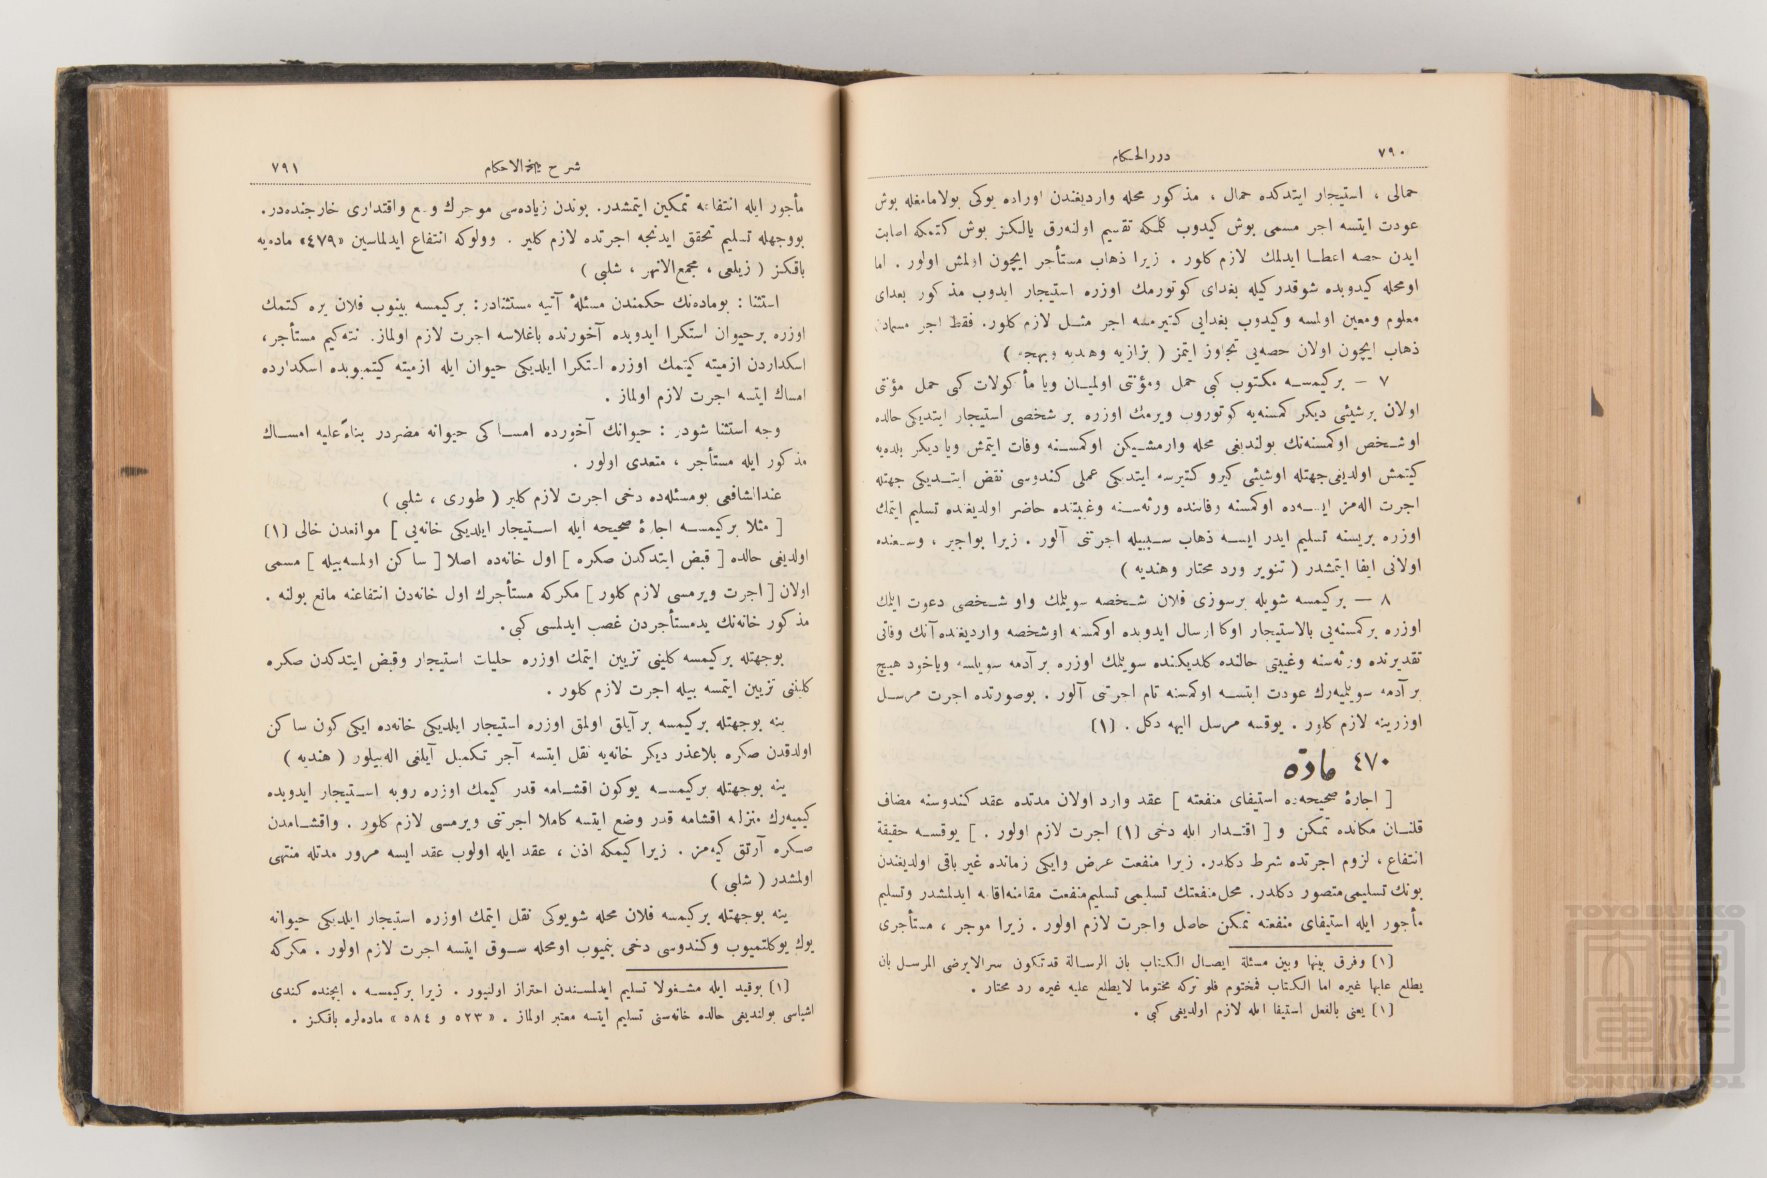 ٧٩٠
دررالحكام
حمالی ، استیجار ایتدكده حمال ، مذكور محله واردیغندن اوراده یوكی بولامامغله بوش
عودت ایتسه اجر مسمی بوش كیدوب كلمكه تقسیم اولنه‌رق یالكز بوش كتمكه اصابت
ایدن حصه اعطا ایدلمك لازم كلور . زیرا ذهاب مستأجر ایچون اولمش اولور . اما
اومحله كیدوبده شوقدر كیله بغدای كوتورمك اوزره استیجار ایدوب مذكور بغدای
معلوم ومعین اولمسه وكیدوب بغدایی كتیرمسه اجر مثل لازم كلور. فقط اجر مسمادن
ذهاب ایچون اولان حصه‌یی تجاوز ایتمز ( بزازیه وهندیه وبهجه )
٧ – بركیمسه مكتوب كبی حمل ومؤنتی اولمیان ویا مأكولات كبی حمل مؤنتی
اولان برشیئی دیكر كمسنه‌یه كوتوروب ویرمك اوزره بر شخصی استیجار ایتدیكی حالده
اوشخص اوكمسنه‌نك بولندیغی محله وارمشیكن اوكمسنه وفات ایتمش ویا دیكر بلده‌یه
كیتمش اولدیغی‌جهتله اوشیئی كیرو كتیرسه ایتدیكی عملی كندوسی نقض ایتدیكی جهتله
اجرت اله‌مز ایسه‌ده اوكمسنه وفاتنده ورثه‌سنه وغیبتنده حاضر اولدیغنده تسلیم ایتمك
اوزره بریسنه تسلیم ایدر ایسه ذهاب سبیله اجرتنی آلور . زیرا بواجیر ، وسعنده
اولانی ایفا ایتمشدر ( تنویر ورد محتار وهندیه )
٨ — بركیمسه شویله برسوزی فلان شخصه سویلمك واو شخصی دعوت ایلمك
اوزره بركمسنه‌یی بالاستیجار اوكا ارسال ایدوبده اوكمسنه اوشخصه واردیغنده آنك وفاتی
تقدیرنده ورثه‌سنه وغیبتی حالنده كلدیكنده سویلمك اوزره بر آدمه سویلسه ویاخود هیچ
بر آدمه سویلمیه‌رك عودت ایتسه اوكمسنه تام اجرتنی آلور . بوصورتده اجرت مرسل
اوزرینه لازم كلور . یوقسه مرسل الیهه دكل . (١)
٤٧٠ ماده
[ اجارۀ صحیحه‌ده استیفای منفعته ] عقد وارد اولان مدتده عقد كندوسنه مضاف
قلنان مكانده تمكن و [ اقتدار ایله دخی (١) اجرت لازم اولور . ] یوقسه حقیقة
انتفاع ، لزوم اجرتده شرط دكلدر. زیرا منفعت عرض وایكی زمانده غیر باقی اولدیغندن
بونك تسلیمی‌متصور دكلدر. محل‌منفعتك تسلیمی تسلیم‌منفعت مقامنه‌اقامه ایدلمشدر وتسلیم
مأجور ایله استیفای منفعته تمكن حاصل واجرت لازم اولور . زیرا موجر ، مستأجری
(١) وفرق بینها وبین مسئلة ایصال الكتاب بان الرسالة قدتكون سرالایرضی المرسل بان
یطلع علیها غیره اما الكتاب فمختوم فلو تركه مختوما لایطلع علیه غیره رد محتار .
(١) یعنی بالفعل استیفا ایله لازم اولدیغی كبی .
شرح مجلةالاحكام
٧٩١
مأجور ایله انتفاعه تمكین ایتمشدر. بوندن زیاده‌سی موجرك وسع واقتداری خارجنده‌در.
بووجهله تسلیم تحقق ایدنجه اجرتده لازم كلیر . وولوكه انتفاع ایدلماسین «٤٧٩» ماده‌یه
باقكز ( زیلعی ، مجمع‌الانهر ، شلبی )
استثنا : بوماده‌نك حكمندن مسئلۀ آتیه مستثنادر: بركیمسه بینوب فلان یره كتمك
اوزره برحیوان استكرا ایدوبده آخورنده باغلاسه اجرت لازم اولماز. نته‌كیم مستأجر،
اسكداردن ازمیته كیتمك اوزره استكرا ایلدیكی حیوان ایله ازمیته كیتمیوبده اسكدارده
امساك ایتسه اجرت لازم اولماز .
وجه استثنا شودر : حیوانك آخورده امساكی حیوانه مضردر بناءً‌علیه امساك
مذكور ایله مستأجر ، متعدی اولور .
عندالشافعی بومسئله‌ده دخی اجرت لازم كلیر ( طوری ، شلبی )
[ مثلا بركیمسه اجارۀ صحیحه ایله استیجار ایلدیكی خانه‌یی ] موانعدن خالی (١)
اولدیغی حالده [ قبض ایتدكدن صكره ] اول خانه‌ده اصلا [ ساكن اولمسه‌بیله ] مسمی
اولان [ اجرت ویرمسی لازم كلور ] مكركه مستأجرك اول خانه‌دن انتفاعنه مانع بولنه .
مذكور خانه‌نك یدمستأجردن غصب ایدلمسی كبی.
بوجهتله بركیمسه كلینی تزیین ایتمك اوزره حلیات استیجار وقبض ایتدكدن صكره
كلینی تزیین ایتمسه بیله اجرت لازم كلور .
ینه بوجهتله بركیمسه بر آیلق اولمق اوزره استیجار ایلدیكی خانه‌ده ایكی كون ساكن
اولدقدن صكره بلاعذر دیكر خانه‌یه نقل ایتسه آجر تكمیل آیلغی اله‌بیلور ( هندیه )
ینه بوجهتله بركیمسه بوكون اقشامه قدر كیمك اوزره روبه استیجار ایدوبده
كیمیه‌رك منزلنه اقشامه قدر وضع ایتسه كاملا اجرتنی ویرمسی لازم كلور . واقشامدن
صكره آرتق كیه‌مز . زیرا كیمكه اذن ، عقد ایله اولوب عقد ایسه مرور مدتله منتهی
اولمشدر ( شلبی )
ینه بوجهتله بركیمسه فلان محله شویوكی نقل ایتمك اوزره استیجار ایلدیكی حیوانه
یوك یوكلتمیوب وكندوسی دخی بنمیوب اومحله سوق ایتسه اجرت لازم اولور . مكركه
(١) بوقید ایله مشغولا تسلیم ایدلمسندن احتراز اولنیور . زیرا بركیمسه ، ایچنده كندی
اشیاسی بولندیغی حالده خانه‌سنی تسلیم ایتسه معتبر اولماز . « ٥٢٣ و ٥٨٤ » ماده‌لره باقكز .
TOYO BUNKO
TOYO BUNKO